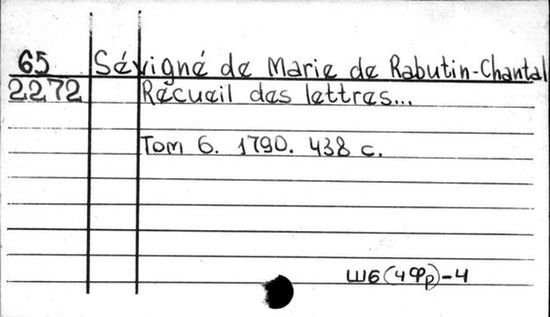 65 Sévigné de Marie de Rabutin-Chantal
2272 Récueil des lettres...
Tom 6. 1790. 438 c.
Ш6(4Фр)-4